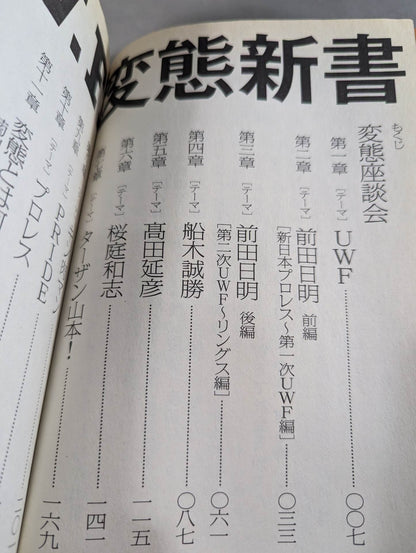 変態新書
もくじ
変態座談会
第一章 [テーマ] UWF 〇〇七
第二章 [テーマ] 前田日明 前編
[新日本プロレス〜第一次UWF編] 〇三三
第三章 [テーマ] 前田日明 後編
[第二次UWF〜リングス編] 〇六一
第四章 [テーマ] 船木誠勝 〇八七
第五章 [テーマ] 高田延彦 一一五
第六章 [テーマ] 桜庭和志 一四一
ターザン山本! 一六九
PRIDE
プロレス
第十一章 変態とは何